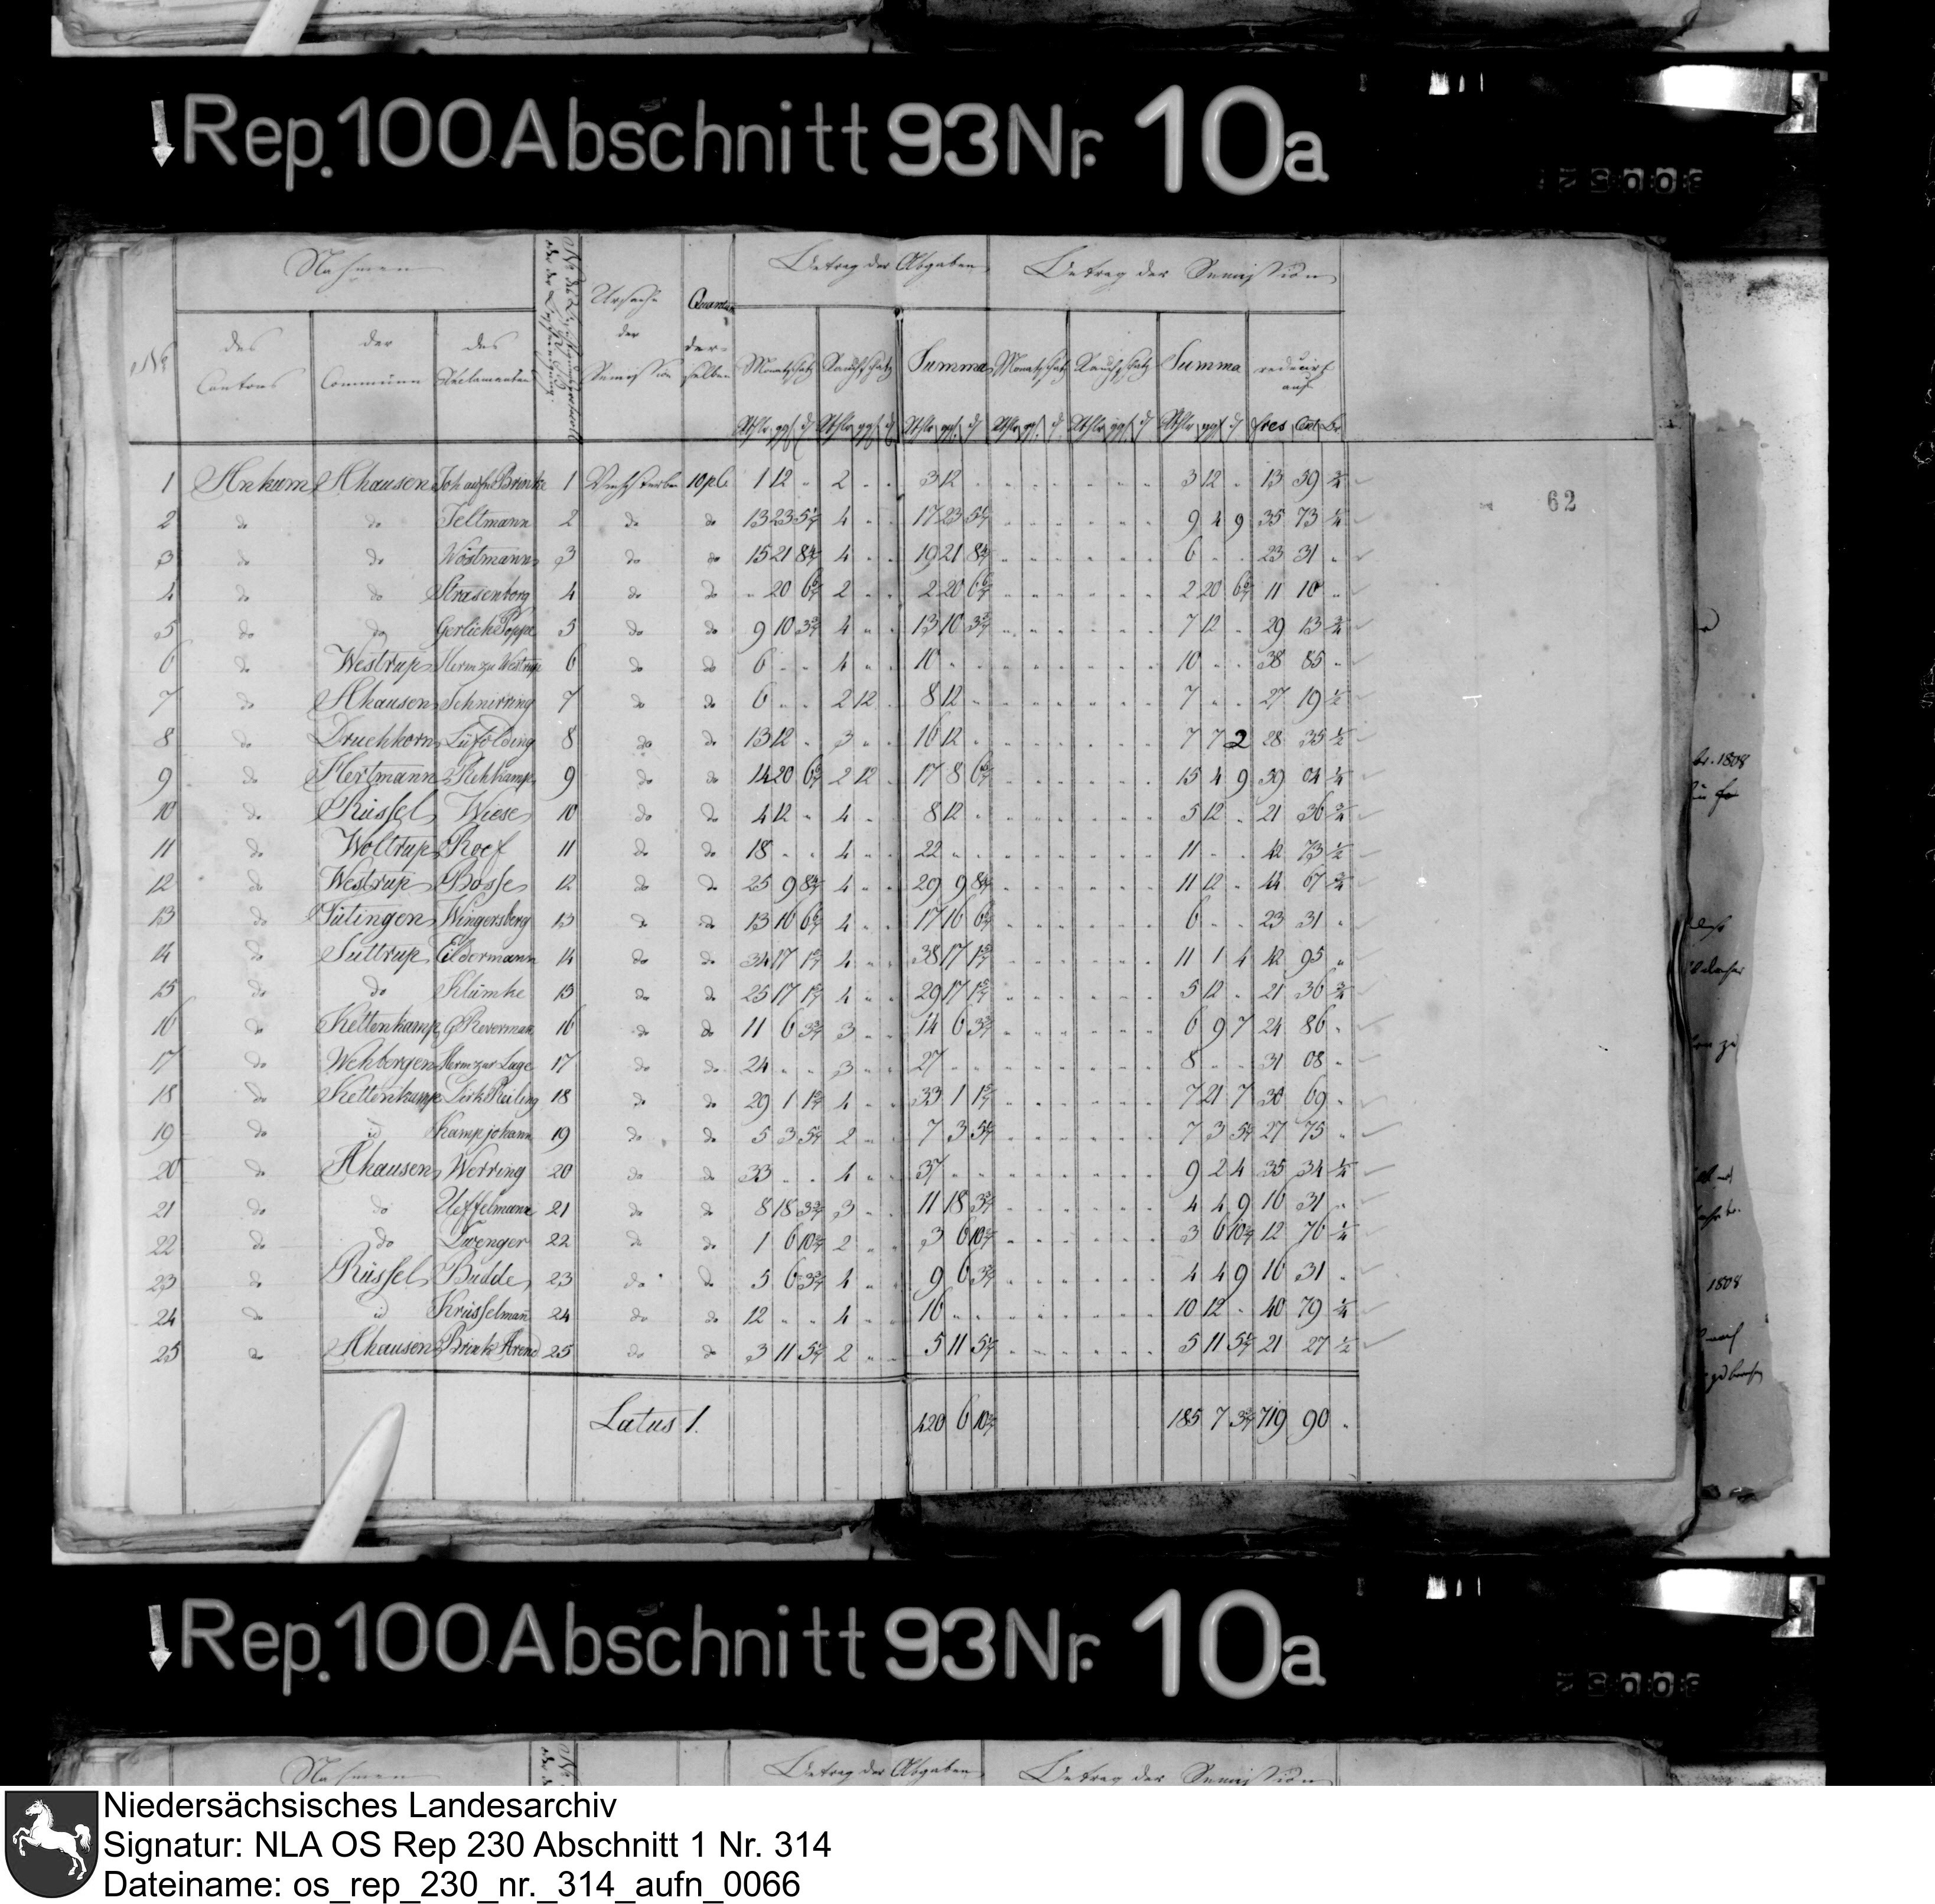 Rep. 100 Abschnitt 93 Nr. 10a
Nahmen Betrag der Abgaben Betrag der Remission
No des Cantons der Commünen des Reclamanten Ursache der Remission Quantum derselben Monatschatz Rauchschatz Summa Monatschatz Rauchschatz Summa reducirt auf
Rthlr ggl ₰ Rthlr ggl ₰ Rthlr ggl ₰ Rthlr ggl ₰ Rthlr ggl ₰ Rthlr ggl ₰ frcs Cent
1 Ankum Ahausen Joh auf'm Brinke 1 Viehsterben 10 1 12 " 2 " " 3 12 " 3 12 " 13 39 3/4
62
2 do do Feltmann 2 do do 13 23 5 1/7 4 " " 17 23 5 1/7 9 4 9 35 73 1/4
3 do do Wöstmann 3 do do 15 21 8 4/7 4 " " 19 21 8 4/7 6 " " 23 31 "
4 do do Strasenborg 4 do do " 20 6 6/7 2 " " 2 20 6 6/7 2 20 6 6/7 11 10 "
5 do do Gerlich Poppe 5 do do 9 10 3 3/7 4 " " 13 10 3 3/7 7 12 " 29 13 3/4
6 do Westrup Herm zu Westrup 6 do do 6 " " 4 " " 10 " " 10 " " 38 85 "
7 do Ahausen Schnirring 7 do do 6 " " 2 12 " 8 12 " 7 " " 27 19 1/2
8 do Druchhorn Lüfolding 8 do do 13 12 " 3 " " 16 12 " 7 7 2 28 35 1/2
9 do Hertmann Rehkamp 9 do do 14 20 6 6/7 2 12 " 17 8 6 6/7 15 4 9 39 04 1/4
10 do Rüssel Wiese 10 do do 4 12 " 4 " " 8 12 " 5 12 " 21 36 3/4
11 do Woltrup Roef 11 do do 18 " " 4 " " 22 " " 11 " " 42 73 1/2
12 do Westrup Bosse 12 do do 25 9 8 4/7 4 " " 29 9 8 4/7 11 12 " 44 67 3/4
13 do Tütingen Wingersberg 13 do do 13 16 6 6/7 4 " " 17 16 6 6/7 6 " " 23 31 "
14 do Suttrup Eildermann 14 do do 34 17 1 5/7 4 " " 38 17 1 5/7 11 1 4 42 95 "
15 do do Klümke 15 do do 25 17 1 5/7 4 " " 29 17 1 5/7 5 12 " 21 36 3/4
16 do Kettenkamp 16 do do 11 6 3 3/7 3 " " 14 6 3 3/7 6 9 7 24 86 "
17 do Wehbergen Herm zur Lage 17 do do 24 " " 3 " " 27 " " 8 " " 31 08 "
18 do Kettenkamp Dirk Reiling 18 do do 29 1 1 5/7 4 " " 33 1 1 5/7 7 21 7 30 69 "
19 do id Kampjohann 19 do do 5 3 5 1/7 2 " " 7 3 5 1/7 7 3 5 1/7 27 75 "
20 do Ahausen Werring 20 do do 33 " " 4 " " 37 " " 9 2 4 35 34 1/4
21 do do Ueffelmann 21 do do 8 18 3 3/7 3 " " 11 18 3 3/7 4 4 9 16 31 "
22 do do Dwenger 22 do do 1 6 10 2/7 2 " " 3 6 10 2/7 3 6 10 2/7 12 76 1/4
23 do Rüssel Budde 23 do do 5 6 3 3/7 4 " " 9 6 3 3/7 4 4 9 16 31 "
24 do id Krüsselmann 24 do do 12 " " 4 " " 16 " " 10 12 " 40 79 1/4
25 do Ahausen Brink Arend 25 do do 3 11 5 1/7 2 " " 5 11 5 1/7 5 11 5 1/7 21 27 1/2
Latus 1. 420 6 10 2/7 185 7 3 3/7 719 90 "
1808
1808
Rep. 100 Abschnitt 93 Nr. 10a
Nahmen Betrag der Abgaben Betrag der Remission
Niedersächsisches Landesarchiv
Signatur: NLA OS Rep 230 Abschnitt 1 Nr. 314
Dateiname: os_rep_230_nr._314_aufn_0066